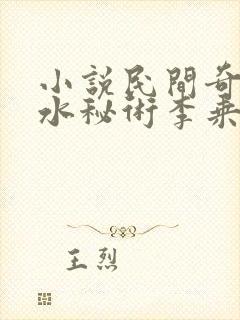 小說民間奇
水秘術李乘
王烈